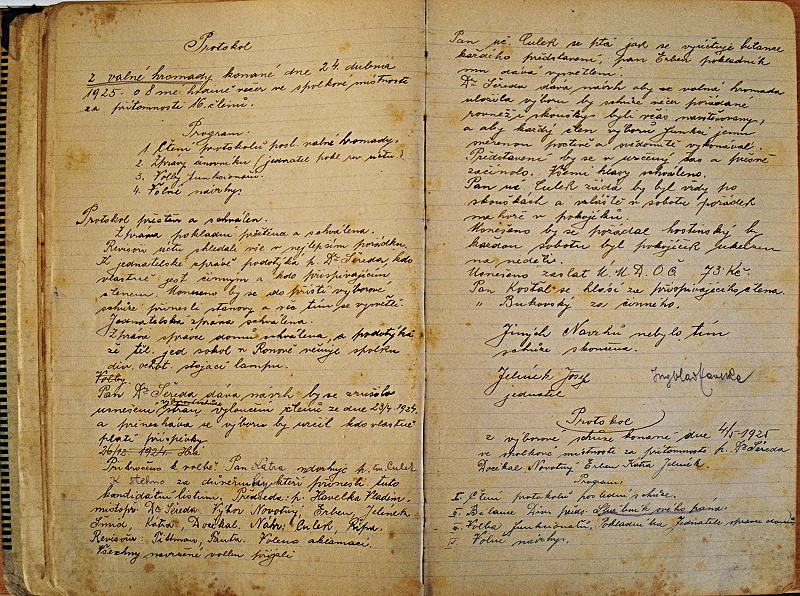 Protokol
z valné hromady konané dne 24 dubna
1925. o 8 mé hodině večer ve spolkové místnosti
za přítomnosti 16. členů.
Program:
1. Čtení protokolu posl. valné hromady.
2. Zprávy činovníků (jednatel pokl. rev. účtů.)
3. Volby funkcionářů.
4. Volné návrhy
Protokol přečten a schválen.
Zpráva pokladní přečtena a schválena.
Revisoři účtů shledali vše v nejlepším pořádku.
K jednatelské zprávě podotýká p. Dr Sereda, kdo
vlastně jest činným a kdo přispívajícím
členem. Usneseno by se do příští výborové
schůze přinesli stanovy a věc tím se vysvětlí.
Jednatelská zpráva schválena.
Zpráva správce domu schválena, a podotýká
že těl. jed. sokol v Ronově věnuje spolku
div. ochot. stojací lampu.
Volby.
Pan Dr. Sereda dává návrh by se zrušilo
usnesení výloučení členů ze dne 23/4 1924.
a přenechává se výboru by určil kdo vlastně
platí příspěvky
Přikročeno k volbě Pan Katra navrhuje p. Culek
K. Stehno za důvěrníky kteří přinesli tuto
kandidátní listinu. Předseda: p. Havelka Vladim.
místopř. Dr. Sereda. Výbor Novotný, Erben, Jelínek
Šmíd, Katra, Dočkal, Culek, Řípa.
Revisoři: Pittman, Panta. Voleno aklamací.
Všechny navržené volbu přijali
Pan uč. Culek se ptá jak se vyúčtuje bilance
každého představení, pan Erben pokladník
mu dává vysvětlení.
Dr. Sereda dává návrh aby se valná hromada
uložila výboru by schůze večer pořádané
rovněž i skoušky byli včas navštěvovány,
a aby každý člen výboru funkci jemu
měrenou poctivě a svědomitě vykonával.
Představení by se v určený čas a přesně
začínalo. Všemi hlasy schváleno.
Pan uč. Culek žádá by byl vždy po
skouškách a zvláště v sobotu pořádek
na hoře v pokojíku.
Usneseno by se požádal hostinský by
každou sobotu byl pokojíček uklizen
na neděli.
Usneseno zaslat Ú. M. D. O. Č. 73 Kč.
Pan Košťál se hlásí za přispívajícího člena.
" Bukovský za činného.
Jiných Návrhů nebylo tím
schůze skončena.
Jelínek Josef
jednatel
Protokol
z výborové schůze konané dne 4/5 1925
ve spolkové místnosti za přítomnosti p. Dr Sereda
Dočkal Novotný Erben Katra Jelínek.
Program:
I. Čtení protokolu poslední schůze.
II. Bilance Div. před.
Volba funkcionářů. Pokladníka, Jednatele správce domu
IV. Volné návrhy.